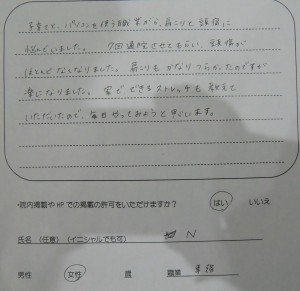 子育てと、パソコンを使う職業がら、肩こりと頭痛に
悩んでいました。 7回通院させてもらい、頭痛が
ほとんどなくなりました。 肩こりもかなりつらかったのですが
楽になりました。 家でできるストレッチも教えて
いただいたので、毎日やってみようと思います。
・院内掲載やHPでの掲載の許可をいただけますか? はい いいえ
氏名(任意)(イニシャルでも可) N
男性 女性 歳 職業 事務